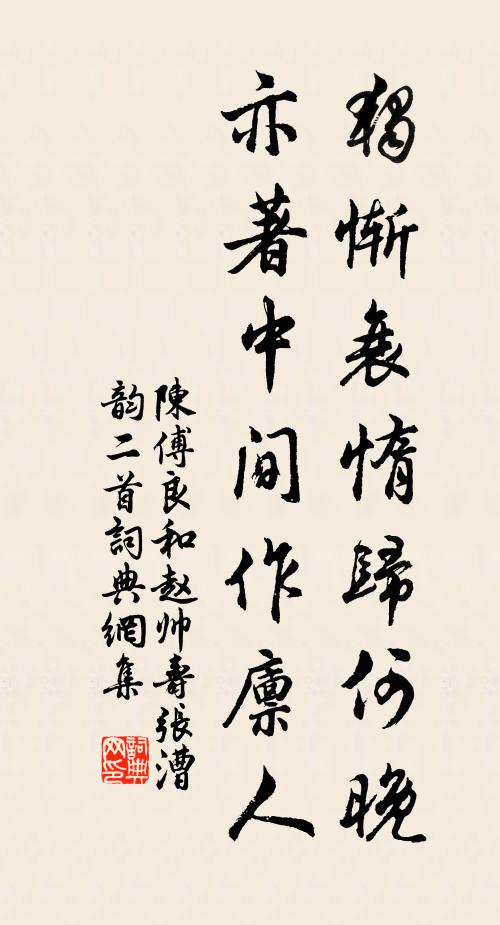 獨慚衰惰歸何晚
亦著中間作廪人
陳傅良和赵帅壽張漕
韵二首詞典網集
詞典網印